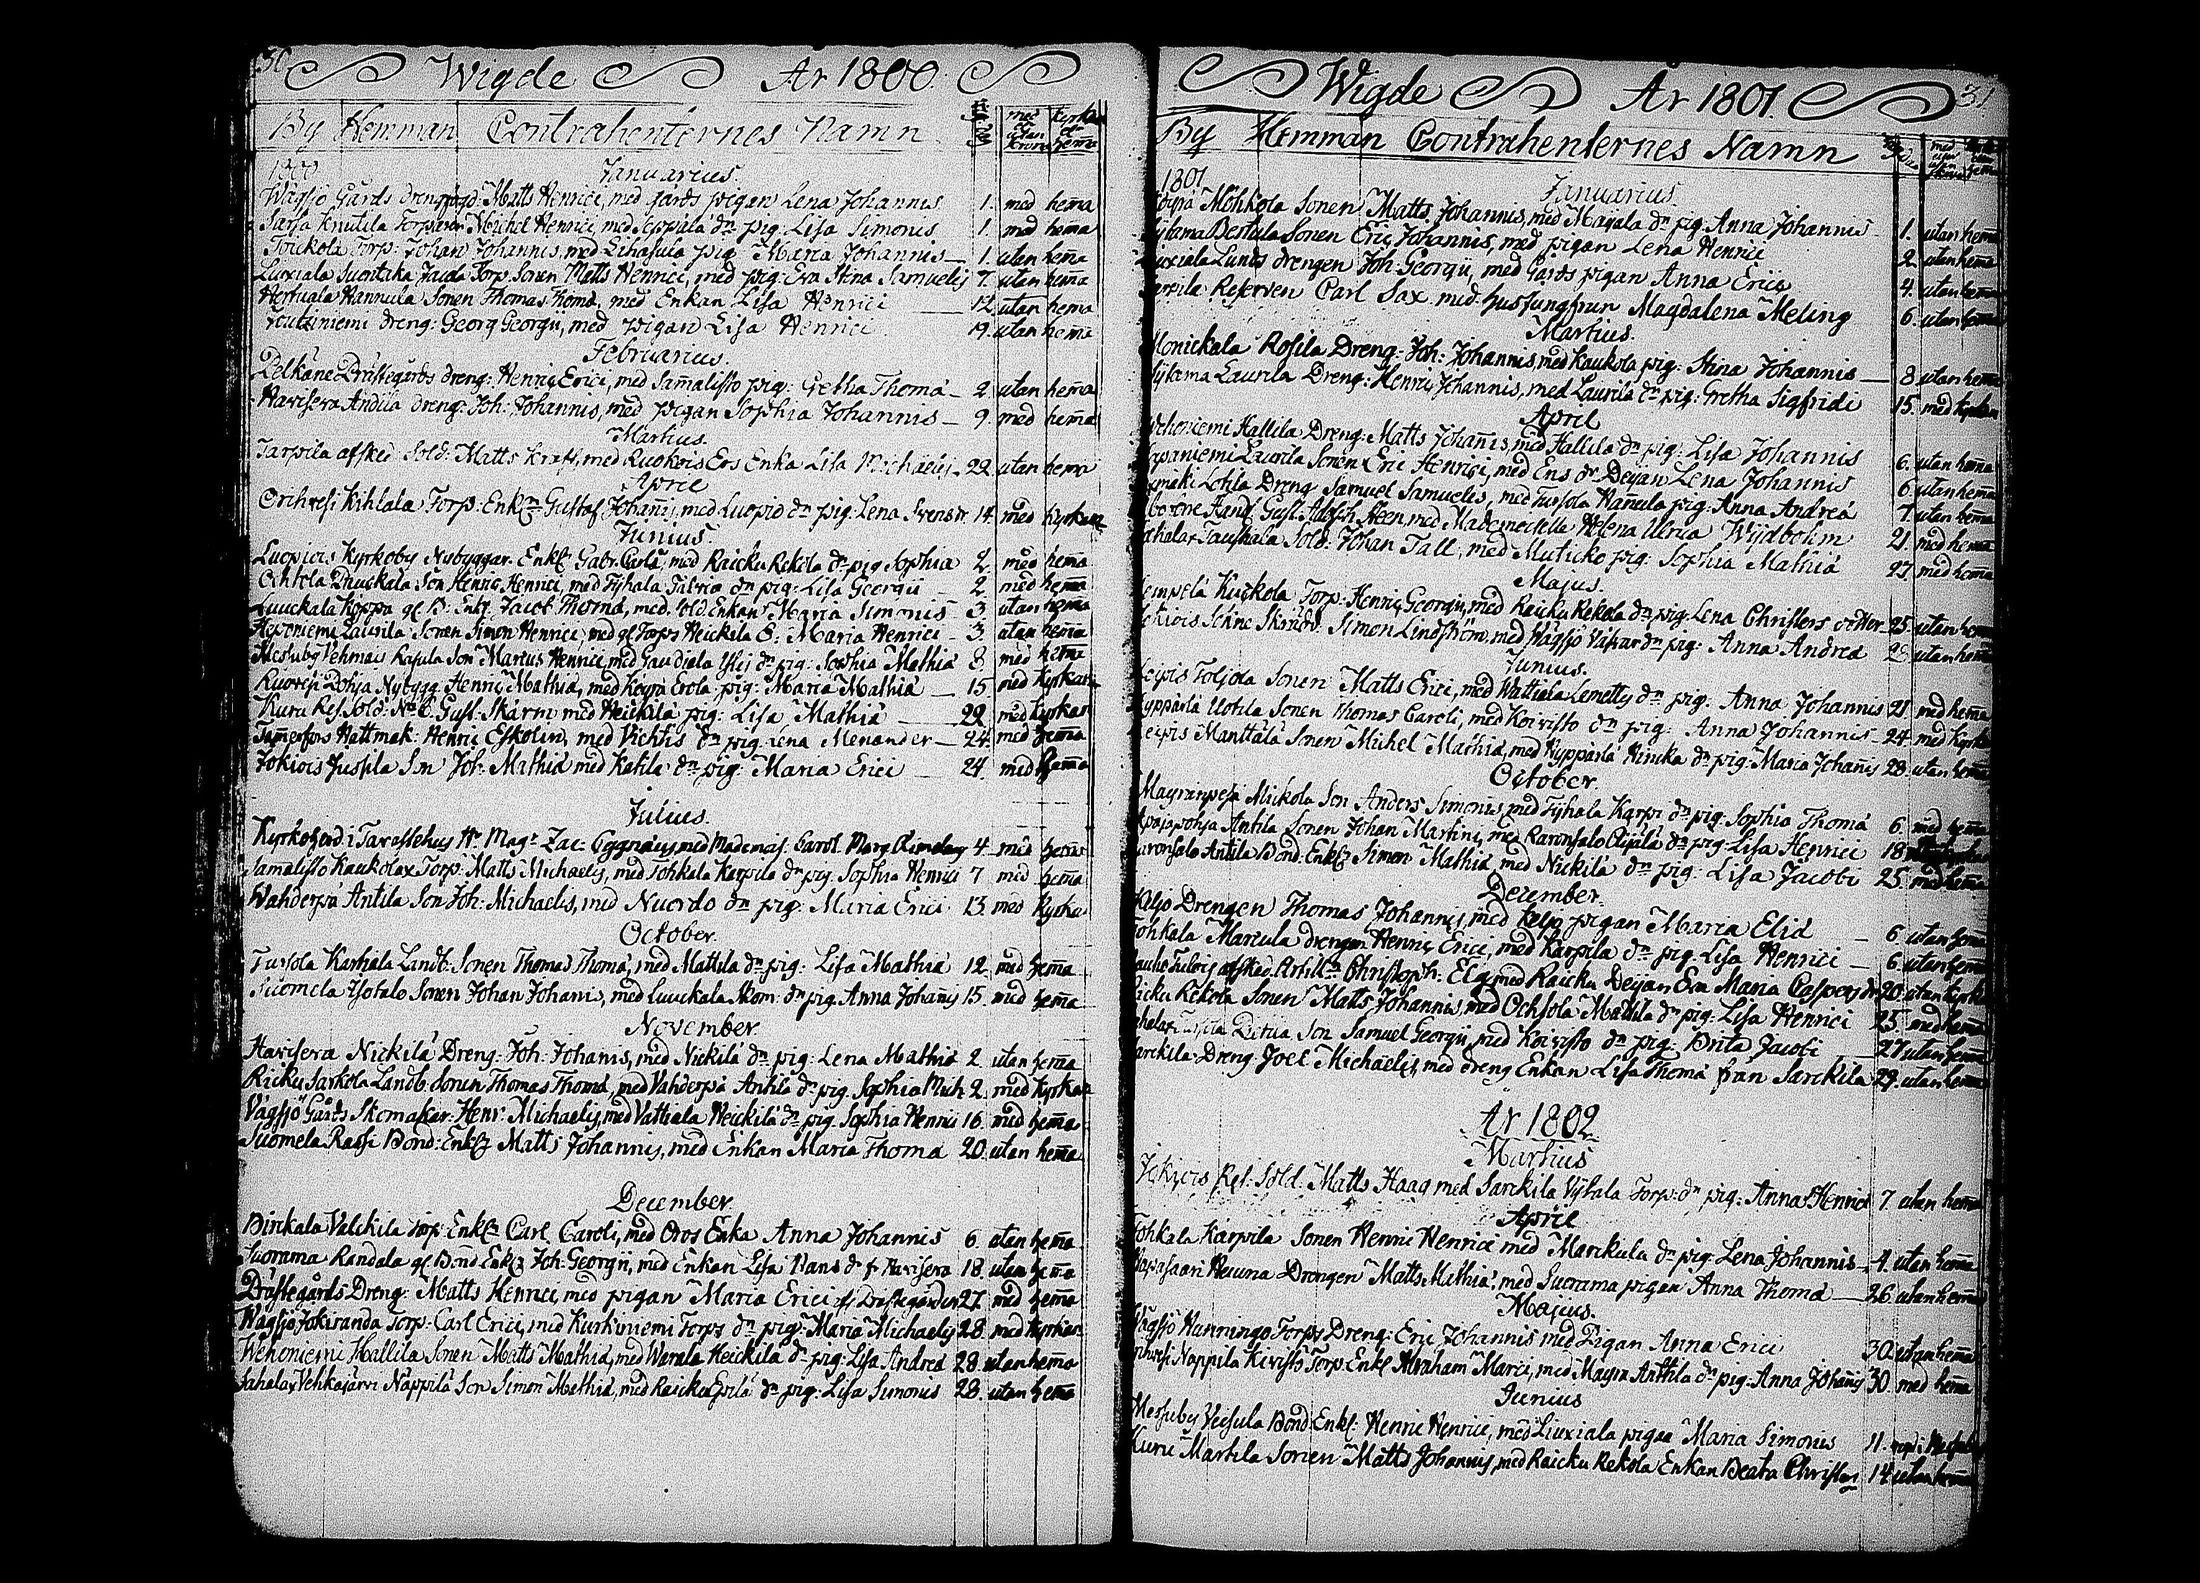 Wigde År 1800.
By Hemman Contrahenternes Namn
med el. utan krona kyrkan el. hem̄a
1800 Januarius.
Wågsjö Gårds Matts Henrici, med gårds pigan Lena Johannis 1. med hem̄a
Sarsa Knutila Michel Henrici, med Seppälä dr pig: Lisa Simonis 1. med hem̄a
Torp: Johan Johannis, med Lihasula pig: Maria Johannis 1. utan hem̄a
Liuxiala Suontaka Torp. Sonen Matts Henrici, med pig: Eva Stina Samuelis 7. utan hem̄a
Hertuala Hannula Sonen Thomas Thomæ, med Enkan Lisa Henrici 12. utan hema
dreng: Georg Georgii, med pigan Lisa Henrici 19. utan hem̄a
Februarius.
Pelkäne Prästegårds dreng: Henric Erici, med Sam̄alisto pig: Gretha Thomæ 2 utan hem̄a
Havisera Andila dreng: Joh: Johannis, med pigan Sophia Johannis 9. med hem̄a
Martius.
Tarpila afsked Sold: Matts Kraft, med Ruokois Ers Enka Lisa Michaelis 22. utan hema
April
Orihvesi Kihlala Torp: Enkl: Gustaf Johan̄is, med Luopio dr pig: Lena Svensdr 14. med kyrkan
Junius.
Luopiois Kyrkoby Nybyggar Enkl: Gabr: Carls, med Raicku Rekola dr pig Sophia 2. med hem̄a
Ochtola Son Henric Henrici, med Tyhala dr pig: Lisa Georgii 2. med hem̄a
Luuckala Hoppa gl. B: Enkl. Jacob Thomæ, med Sold. Enkan Maria Simonis 3 utan hem̄a
Haponiemi Laurila Sonen Simon Henrici, med gl Torps Heickila E: Maria Henrici 3. utan hem̄a
Messuby Vehmais Rasula Son Marcus Henrici, med dr pig: Sophia Mathiæ 8 med hem̄a
Ruovesi Pohja Nybygg: Henric Mathiæ, med Keyrä Erola pig: Maria Mathiæ 15 med kyrkan
Kuru Res. Sold: No 6. Gust. Skärm med Heickilä pig: Lisa Mathiæ 22. med kyrkan
Tamerfors Hattmak: Henric Eskolin, med Vichtis dr pig: Lena Menander 24. med hem̄a
Jokiois Jussila Son Joh: Mathiæ med Katila dr pig: Maria Erici 24. med hem̄a
Julius.
Kyrkoherd: i Tavastehus Hr Magr Zac: Cygnæus, med Mademois: Carol: Marg: 4 med hem̄a
Samalisto Kaukola Torp: Matts Michaelis, med Tohkala Karpila dr pig: Sophia Henrici 7 med hem̄a
Wahderpä Antila Son Joh: Michaelis, med Nuordo dr pig: Maria Erici 13. med kyrkan
October.
Tursola Karhala Landb: Sonen Thomas Thomæ, med Mattila dr pig: Lisa Mathiæ 12. med hem̄a
Suomela Isotalo Sonen Johan Johanis, med Luuckala Skom: dr pig. Anna Johan̄is 15. med hem̄a
November.
Havisera Nickilä Dreng: Joh: Johanis, med Nickilä dr pig: Lena Mathiæ 2. utan hem̄a
Ricku Sarkola Landb: Sonen Thomas Thomæ, med Vahderpä Antila dr pig. Sophia Mich: 2. med kyrkan
Vågsjö Gårds Skomakar: Henr: Michaelis, med Vattiala Heickilä dr pig. Sophia Henrici 16. med hem̄a
Suomela Rassi Bond: Enkl: Matts Johannis, med Enkan Maria Thomæ 20. utan hem̄a
December.
Birckala Valckila Torp: Enkl: Carl Caroli, med Oros Enka Anna Johannis 6. utan hem̄a
Suorama Randala gl Bond Enkl: Joh: Georgii, med Enkan Lisa Hans dr fr Havisera 18. utan hem̄a
Prästegårds Dreng: Matts Henrici, med pigan Maria Erici fr Prästegården 27. med hem̄a
Wågsjö Jokiranda Torp: Carl Erici, med Kurkiniemi Torps dr pig: Maria Michaelis 28. med kyrkan
Wehoniemi Hallila Sonen Matts Mathiæ, med Werala Heickila dr pig: Lisa Andreæ 28. utan hem̄a
Sahalax Vehkajärvi Nappilä Son Simon Mathiæ, med Raicku Epilä dr pig: Lisa Simonis 28. utan hem̄a
Wigde År 1801. 31
By Hemman Contrahenternes Namn
1801 Januarius.
Möhkola Sonen Matts Johannis, med Magala dr pig: Anna Johannis 1. utan hem̄a
Bertula Sonen Eric Johannis, med pigan Lena Henrici 2. utan hem̄a
Liuxiala drengen Joh: Georgii, med Gårds pigan Anna Erici 4. utan hem̄a
Reserven Carl Sax med husjungfrun Magdalena Meling 6. utan hem̄a
Martius.
Monickala Rosila Dreng: Joh: Johannis, med Kaukola pig: Stina Johannis 8 utan hem̄a
Laurila Dreng: Henric Johannis, med Laurila dr pig: Gretha Sigfridi 15. med kyrkan
April
Wehoniemi Hallila Dreng: Matts Johan̄is, med Hallila dr pig: Lisa Johannis 6. utan hem̄a
Haponiemi Laurila Sonen Eric Henrici, med Ens dr Dejan Lena Johannis 6 utan hem̄a
Lotila Dreng Samuel Samuelis, med Tursola Han̄ula pig: Anna Andreæ 7 utan hem̄a
Gust: Adolph Steen, med Mademoiselle Helena Ulrica Wijdbohm 21. med hem̄a
Sahalax Sold: Johan Tall, med Muticko pig: Sophia Mathiæ 27 med hem̄a
Majus.
Kuckola Torp: Henric Georgii, med Raicku Rekola dr pig: Lena Christers dotter 25. utan hem̄a
Jokiois Simon Lindström, med Wågsjö dr pig: Anna Andreæ 23. utan hem̄a
Junius.
Toljola Sonen Matts Erici, med Wattiala Lemetty dr pig: Anna Johannis 21. med hem̄a
Kyppärlä Uotila Sonen Thomas Caroli, med Koivisto dr pig: Anna Johannis 24. med kyrkan
Manttälä Sonen Michel Mathiæ, med Kyppärlä Hinika dr pig: Maria Johan̄is 28. utan hem̄a
October.
Mickola Son Anders Simonis, med Tyhala Karpi dr pig: Sophia Thomæ 6. med hem̄a
Antila Sonen Johan Martini, med Raronsalo dr pig: Lisa Henrici 18.
Raronsalo Antila Bond: Enkl: Simon Mathiæ med Nickilä dr pig: Lisa Jacobi 25. med hem̄a
December.
Drengen Thomas Johannis, med pigan Maria Eliæ 6. utan hem̄a
Tohkala Marcula drengen Henric Erici, med Karpila dr pig: Lisa Henrici 6. utan hem̄a
afsked: Christoph: Elg med Raicku Dejan, Eva Maria Caspers dr 20. utan kyrk
Ricku Rekola Sonen Matts Johannis, med Ochtola Mattila dr pig: Lisa Henrici 25. med hem̄a
Sahalax Son Samuel Georgii med Koivisto dr pig: Brita Jacobi 27. utan hem̄a
Sarckila Dreng Joel Michaelis, med dreng Enkan Lisa Thomæ från Sarckila 29. utan hem̄a
År 1802
Martius
Jokiois Res: Sold: Matts Haag med Sarckila Vyhala Torp: dr pig: Anna Henrici 7. utan hem̄a
April
Tohkala Karpila Sonen Henric Henrici med Marckula dr pig: Lena Johannis 4. utan hem̄a
Drengen Matts Mathiæ, med Suorama pigan Anna Thomæ 26. utan hem̄a
Majus.
Wågsjö Hunningo Torps Dreng: Eric Johannis med Pigan Anna Erici 30. utan hem̄a
Orihvesi Nappila Kivistö Torp: Enkl Abraham Marci, med Mayra Anttila dr pig: Anna Johan̄is 30. med hem̄a
Junius
Messuby Veisula Bond Enkl: Henric Henrici, med Liuxiala pigan Maria Simonis 11. med i Messuby
Kuru Martila Sonen Matts Johannis, med Raicku Rekola Enkan Beata Christers 14. utan hem̄a